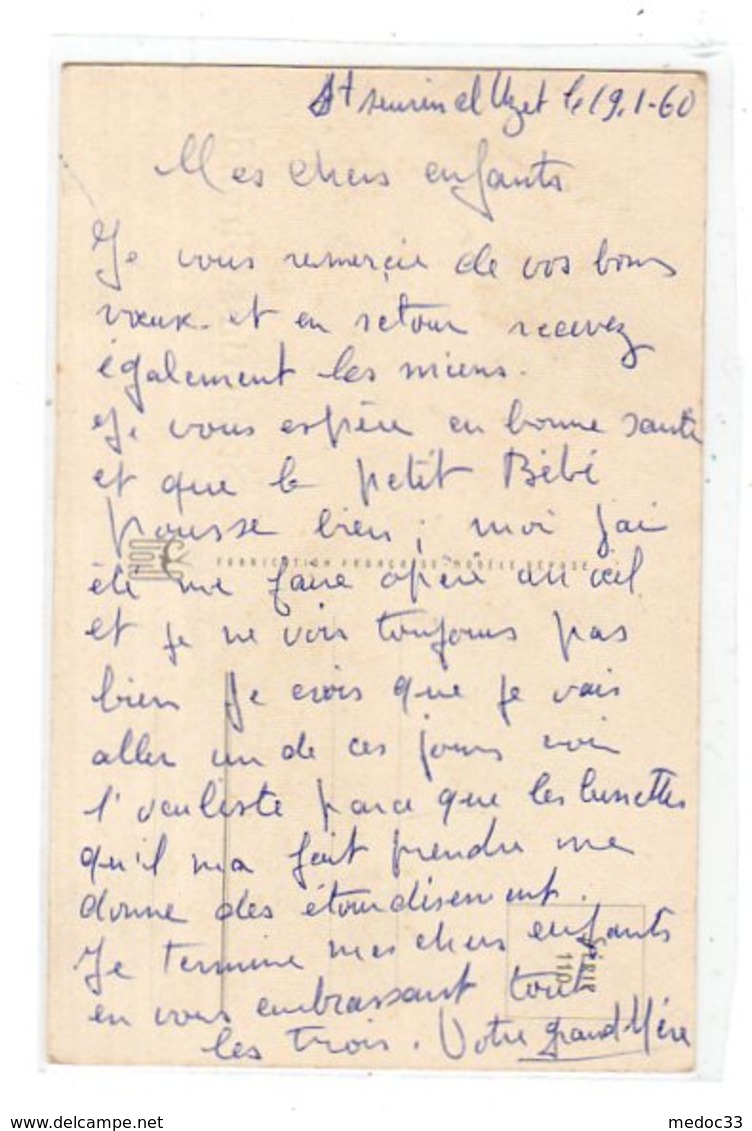 St seurin d'Uzet le 19.1-60
Mes chers enfants
Je vous remercie de vos bons
vœux et en retour recevez
également les miens.
Je vous espère en bonne santé
et que le petit Bébé
pousse bien ; moi j'ai
FABRICATION FRANÇAISE - MODÈLE DÉPOSÉ
été me faire opéré un œil
et je ne vois toujours pas
bien Je crois que je vais
aller un de ces jours voir
l'oculiste parce que les lunettes
qu'il m'a fait prendre me
donne des étourdisement.
Je termine mes chers enfants
SÉRIE
110
en vous embrassant tout
les trois. Votre grand Mère
medoc33